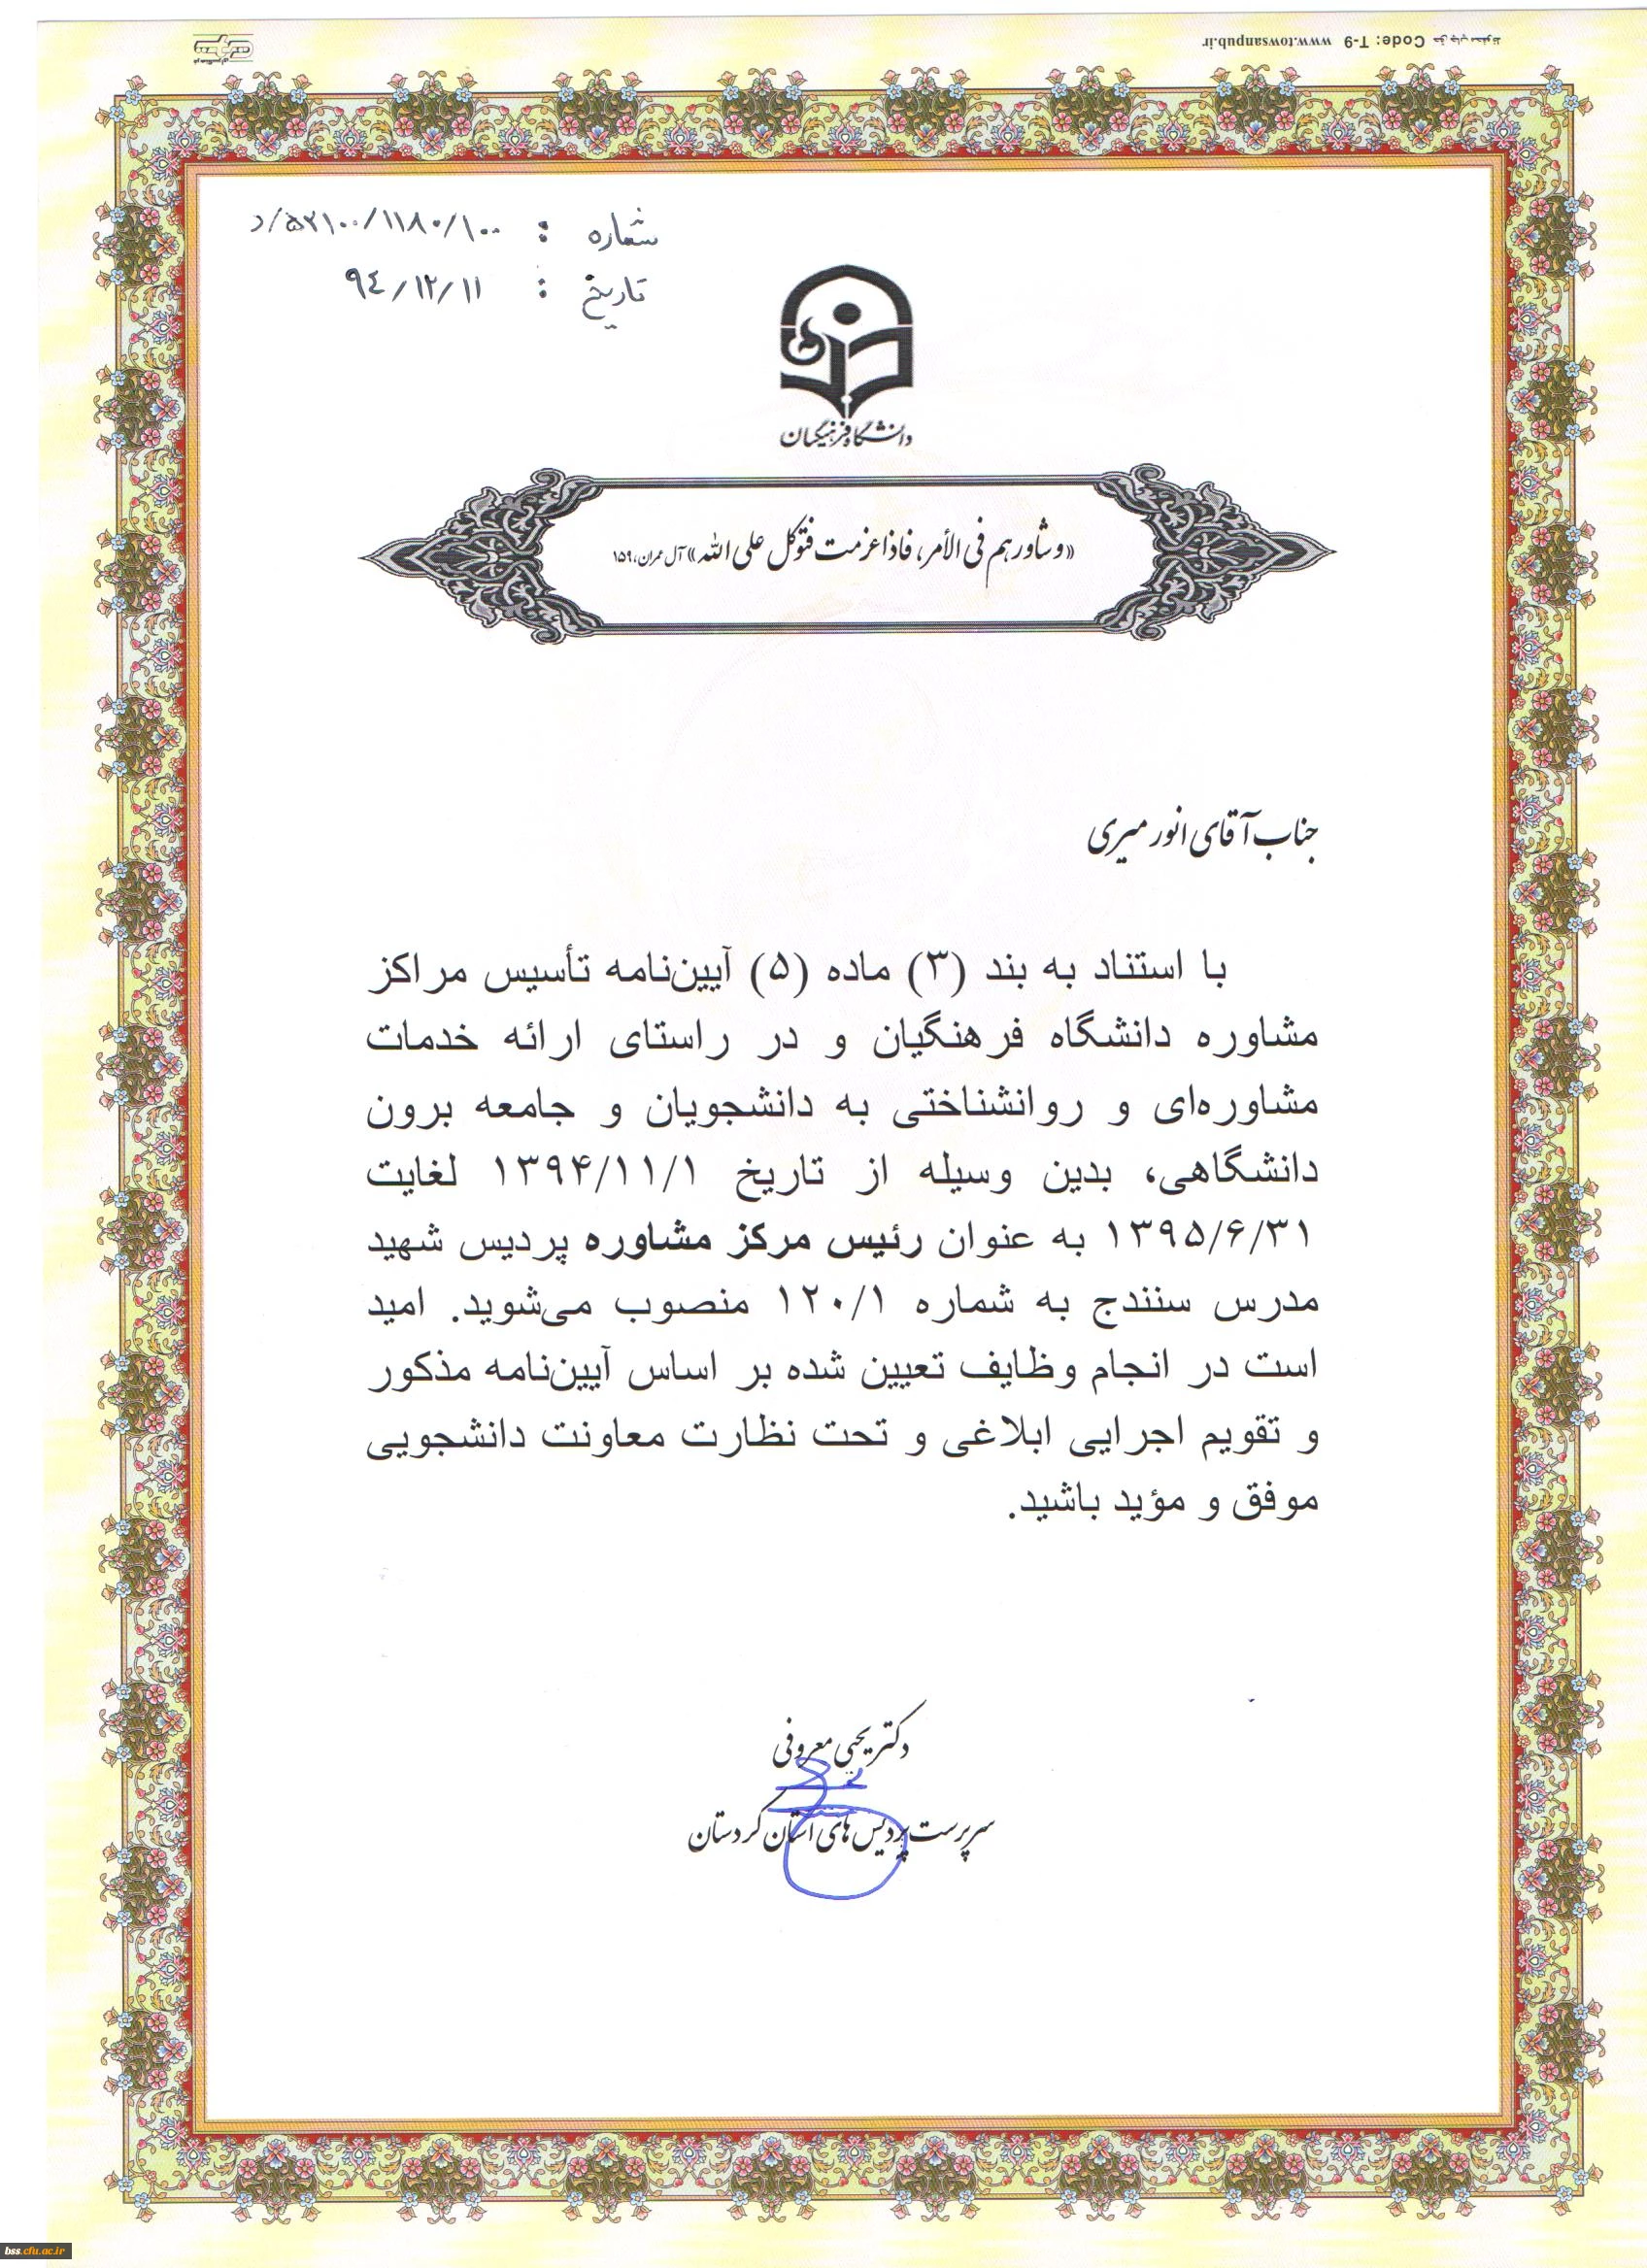 www.towsanpub.ir Code: T-9
شماره : ۱۰۰/۱۱۸۰/۵۲۱۰۰/د
تاریخ : ۹۴/۱۲/۱۱
دانشگاه فرهنگیان
«و شاورهم فی الأمر، فاذا عزمت فتوکل علی الله» آل عمران، ۱۵۹
جناب آقای انور میری
با استناد به بند (۳) ماده (۵) آیین‌نامه تأسیس مراکز
مشاوره دانشگاه فرهنگیان و در راستای ارائه خدمات
مشاوره‌ای و روانشناختی به دانشجویان و جامعه برون
دانشگاهی، بدین وسیله از تاریخ ۱۳۹۴/۱۱/۱ لغایت
۱۳۹۵/۶/۳۱ به عنوان رئیس مرکز مشاوره پردیس شهید
مدرس سنندج به شماره ۱۲۰/۱ منصوب می‌شوید. امید
است در انجام وظایف تعیین شده بر اساس آیین‌نامه مذکور
و تقویم اجرایی ابلاغی و تحت نظارت معاونت دانشجویی
موفق و مؤید باشید.
دکتر یحیی معروفی
سرپرست پردیس های استان کردستان
bss.cfu.ac.ir